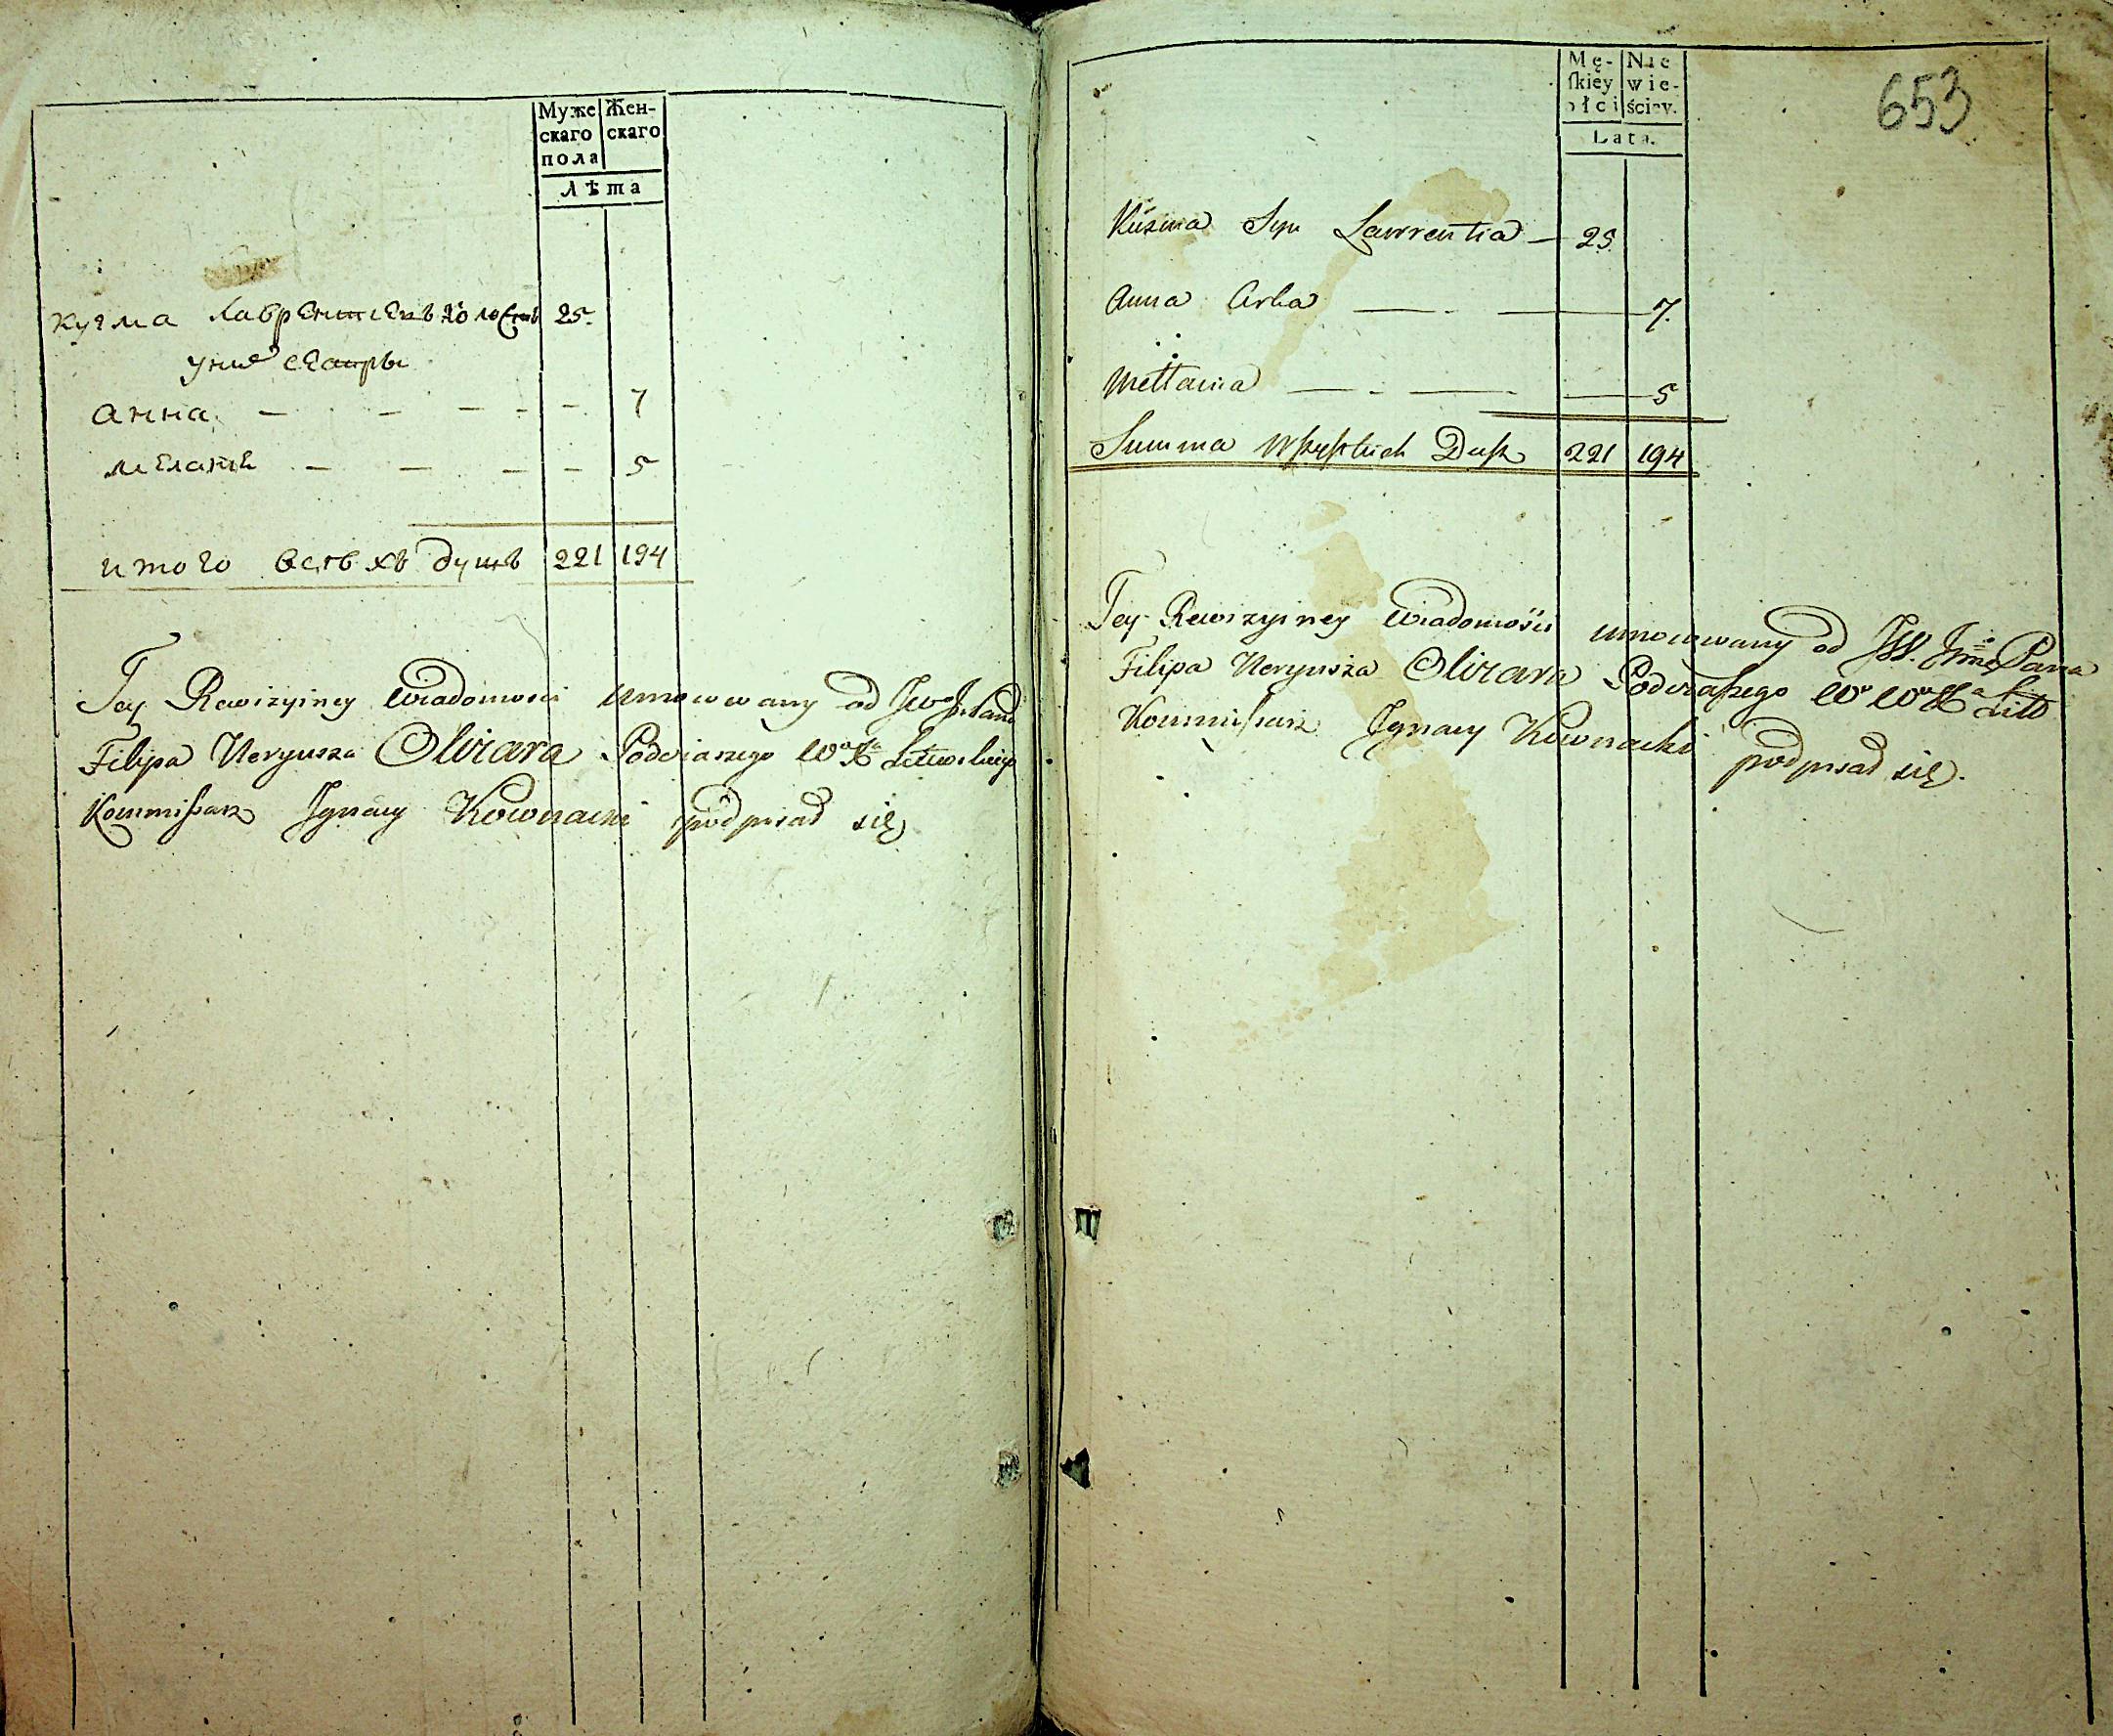 Муже Жен-
скаго скаго
пола
Лѣта
кузма лавренътіевъ холостъ 25.
унего сестры
анна 7
меланя 5
итого всѣхъ душъ 221 194
Tey Rewizyiney Wiadomosci umocowany od
Filipa Neryusza Olizara Podczaszego Litewskiego
Kommissarz Jgnacy Kownacki podpisał się
653
Mę- Nie
skiey wie-
płci ściey.
Lata.
Kuźma Syn Lawrentia 25
Anna Corka 7.
Mellania 5
Summa Wszystkich Dusz 221 194
Tey Rewizyiney Wiadomości umocowany od JW. Jmć Pana
Filipa Neryusza Olizara Podczaszego Litt
Kommissarz Jgnacy Kownacki podpisał się.